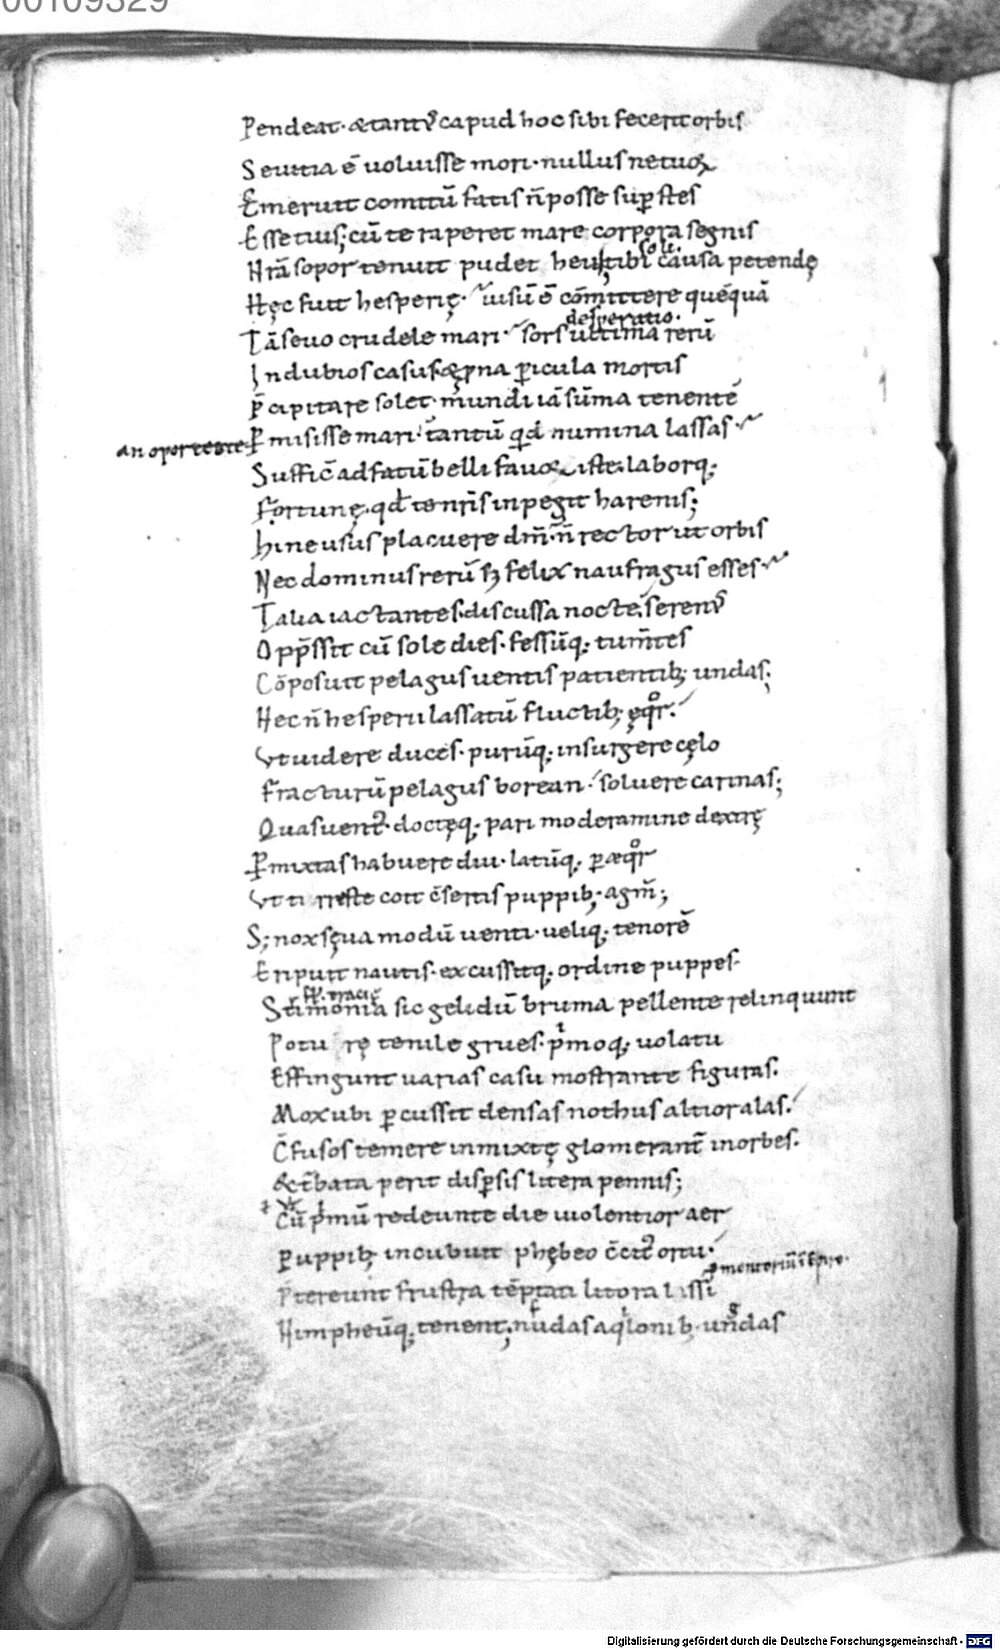 00109329
Pendeat· & tantꝰ capud hoc sibi fecerit orbis
Seuitia ē uoluisse mori· nullus ne tuoꝝ
Emeruit comitū fatis n̄ posse suꝑstes
Esse tuis; cū te raperet mare corpora segnis
Nr̄a sopor tenuit pudet heu tibi causa petendę
soli·
Hęc fuit hesperię· uisū ē cōmittere quēquā
Tā seuo crudele mari· sors ultima rerū
desperatio·
In dubios casus & ꝓna ꝑicula mortis
P̄cipitare solet· mundi iā sūma tenentē
an oportente
Ꝑmisisse mari· tantū qid numina lassas·
Suffic̄ ad fatū belli fauoꝝ iste laborq;
Fortunę· qđ te nr̄is inpegit harenis;
Hine usus placuere dm̄· n̄ rector ut orbis
Nec dominus rerū sꝫ felix naufragus esses·
Talia iactantes· discussa nocte· serenꝰ
Opp̄ssit cū sole dies· fessūq; tum̄tes
Cōposuit pelagus uentis patientibꝫ undas;
Nec n̄ hesperii lassatū fluctibꝫ ęqͦr·
Vt uidere duces· purūq; insurgere cęlo
Fracturū pelagus borean· soluere carinas;
Quas uentꝰ· doctęq; pari moderamine dextrę
Ꝑmixtas habuere diu· latūq; ꝑ æqͦr
Vt ti rreste coit c̄sertis puppibꝫ· agm̄;
S; nox sęua modū uenti· ueliq; tenorē
Eripuit nautis· excussitq; ordine puppes·
fl̄· tracię
Strimonia sic gelidū bruma pellente relinquunt
Potu rę te nile grues· pͥmoq; uolatu
Effingunt uarias casu mostrante figuras·
Mox ubi ꝑcussit densas nothus altior alas·
C̄fusos temere inmixtę glomerant̄ in orbes·
& t̄bata perit disꝑsis litera pennis;
Cū pͥmū redeunte die uiolentior aer
Puppibꝫ incubuit phębeo c̄citꝰ ortu·
P̄tereunt frustra tēptati litora lissi
Nimpheūq; tenent; nudas aqͥlonibꝫ undas
Digitalisierung gefördert durch die Deutsche Forschungsgemeinschaft - DFG